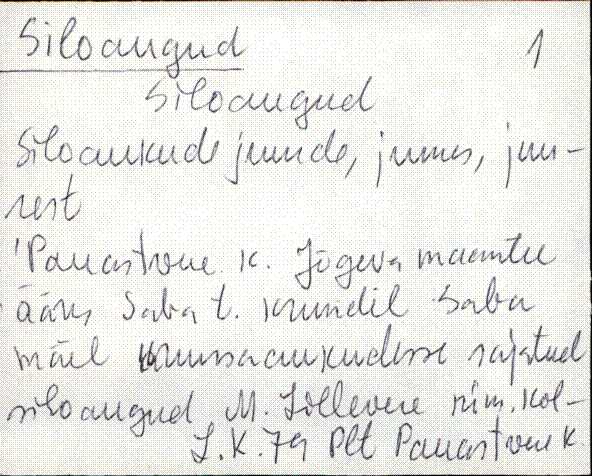 Siloaugud 1
Siloaugud
Siloaukude juurde, juures, juu-
rest
'Pauastvere k. Jõgeva maantee
ääres Saba t. krundil Saba
mäel kruusaaukudesse rajatud
siloaugud M. Lillevere nim. kol-
L.K.79 Plt Pauastvere k